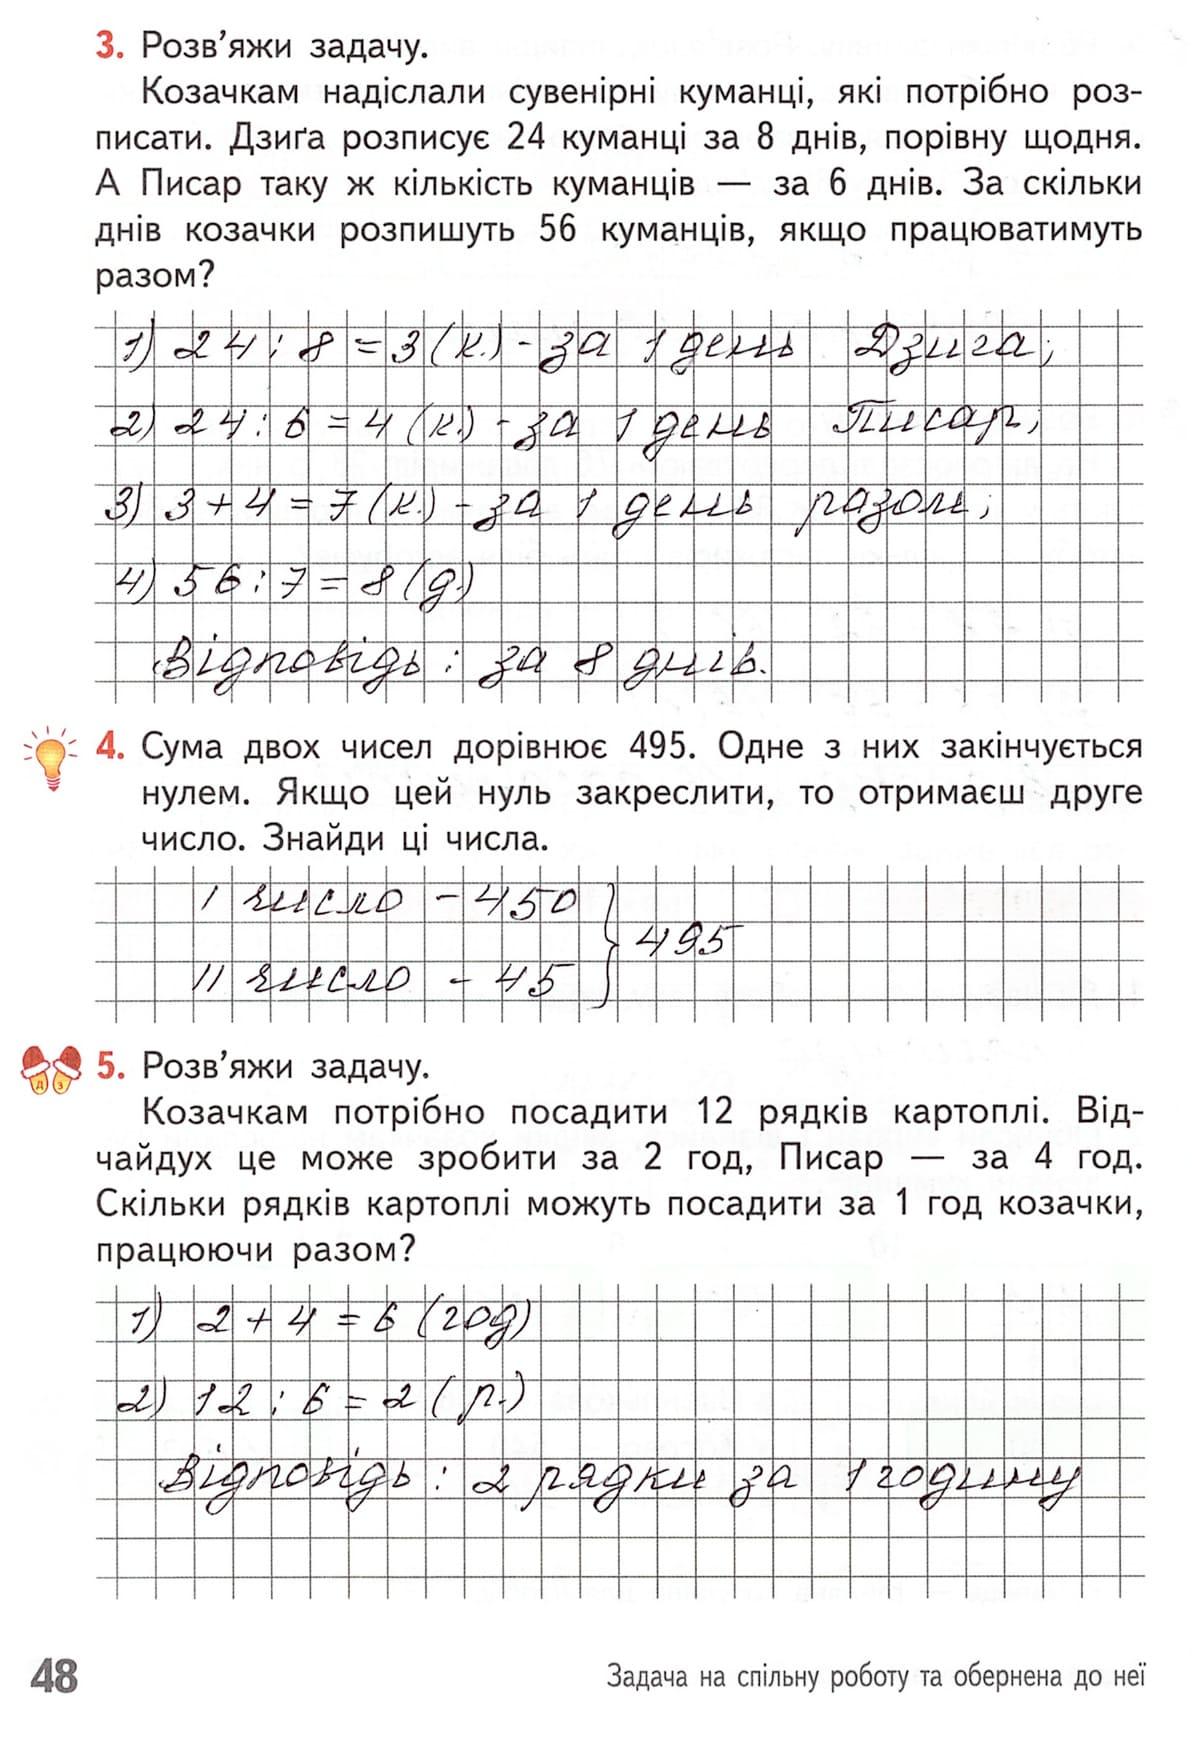 3. Розв’яжи задачу.
Козачкам надіслали сувенірні куманці, які потрібно роз-
писати. Дзиґа розписує 24 куманці за 8 днів, порівну щодня.
А Писар таку ж кількість куманців — за 6 днів. За скільки
днів козачки розпишуть 56 куманців, якщо працюватимуть
разом?
1) 24 : 8 = 3 (к.) - за 1 день Дзига;
2) 24 : 6 = 4 (к.) - за 1 день Писар;
3) 3 + 4 = 7 (к.) - за 1 день разом;
4) 56 : 7 = 8 (д.)
Відповідь : за 8 днів.
4. Сума двох чисел дорівнює 495. Одне з них закінчується
нулем. Якщо цей нуль закреслити, то отримаєш друге
число. Знайди ці числа.
I число - 450
495
II число - 45
д з
5. Розв’яжи задачу.
Козачкам потрібно посадити 12 рядків картоплі. Від-
чайдух це може зробити за 2 год, Писар — за 4 год.
Скільки рядків картоплі можуть посадити за 1 год козачки,
працюючи разом?
1) 2 + 4 = 6 (год)
2) 12 : 6 = 2 (р.)
Відповідь : 2 рядки за 1 годину
48
Задача на спільну роботу та обернена до неї